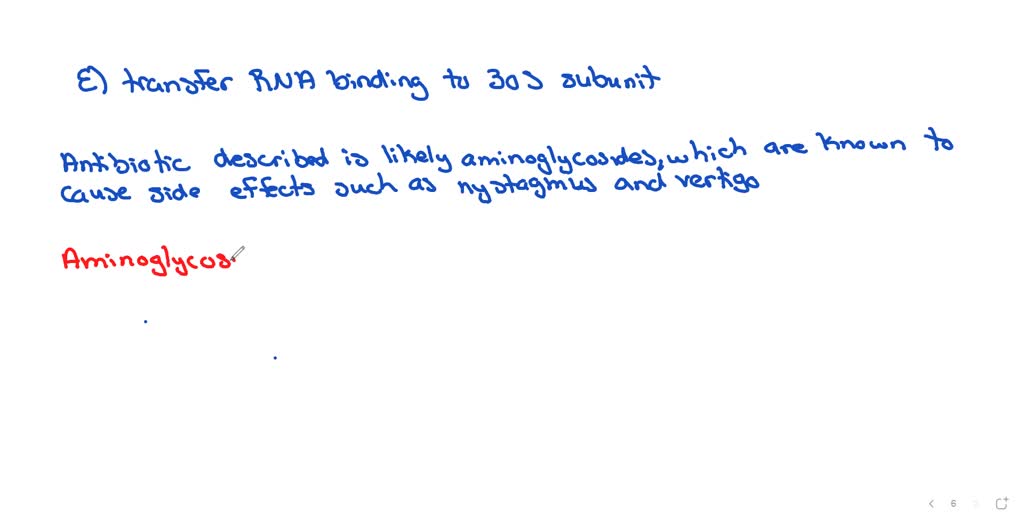 E) transfer RNA binding to 30S subunit
Antibiotic described is likely aminoglycosides, which are known to
cause side effects such as nystagmus and vertigo
Aminoglycos
6